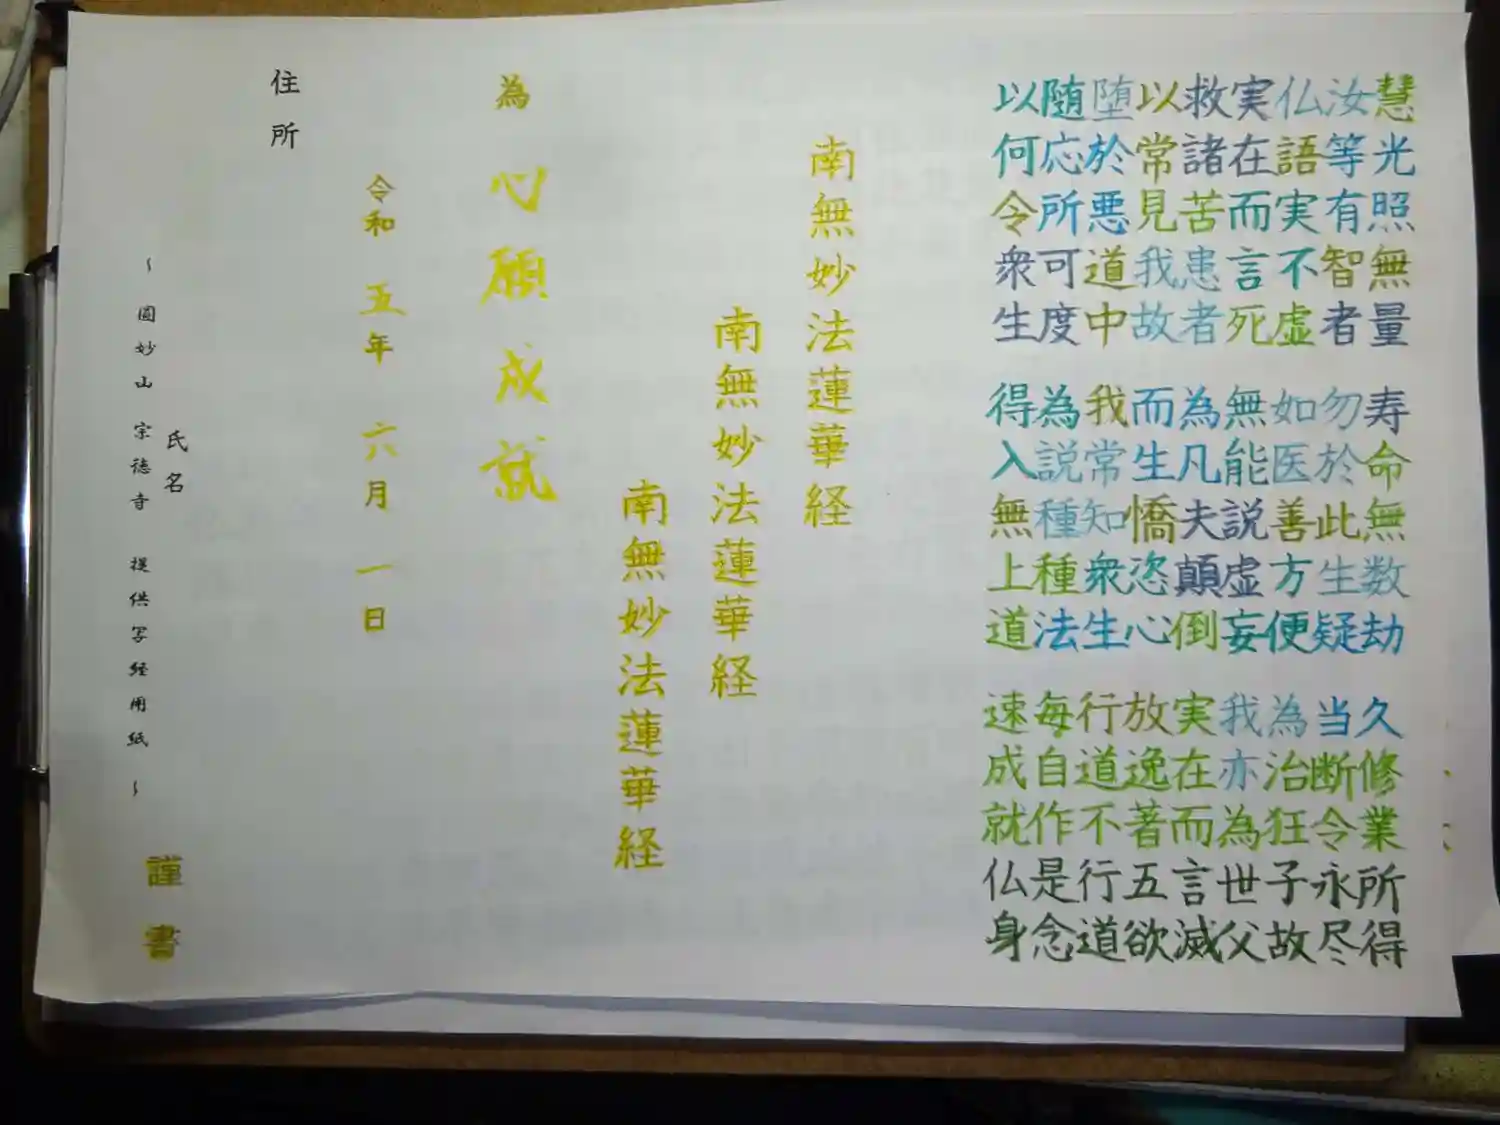 慧光照無量 寿命無数劫 久修業所得
汝等有智者 勿於此生疑 当断令永尽
仏語実不虚 如医善方便 為治狂子故
実在而言死 無能説虚妄 我亦為世父
救諸苦患者 為凡夫顛倒 実在而言滅
以常見我故 而生憍恣心 放逸著五欲
堕於悪道中 我常知衆生 行道不行道
随応所可度 為説種種法 毎自作是念
以何令衆生 得入無上道 速成就仏身
南無妙法蓮華経
南無妙法蓮華経
南無妙法蓮華経
為 心願成就
令和 五年 六月 一日
住所
氏名 謹書
~ 圓妙山 宗徳寺 提供写経用紙 ~